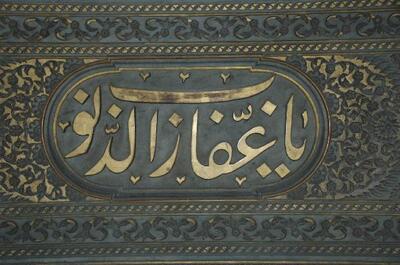 يا غفّار الذّنوب